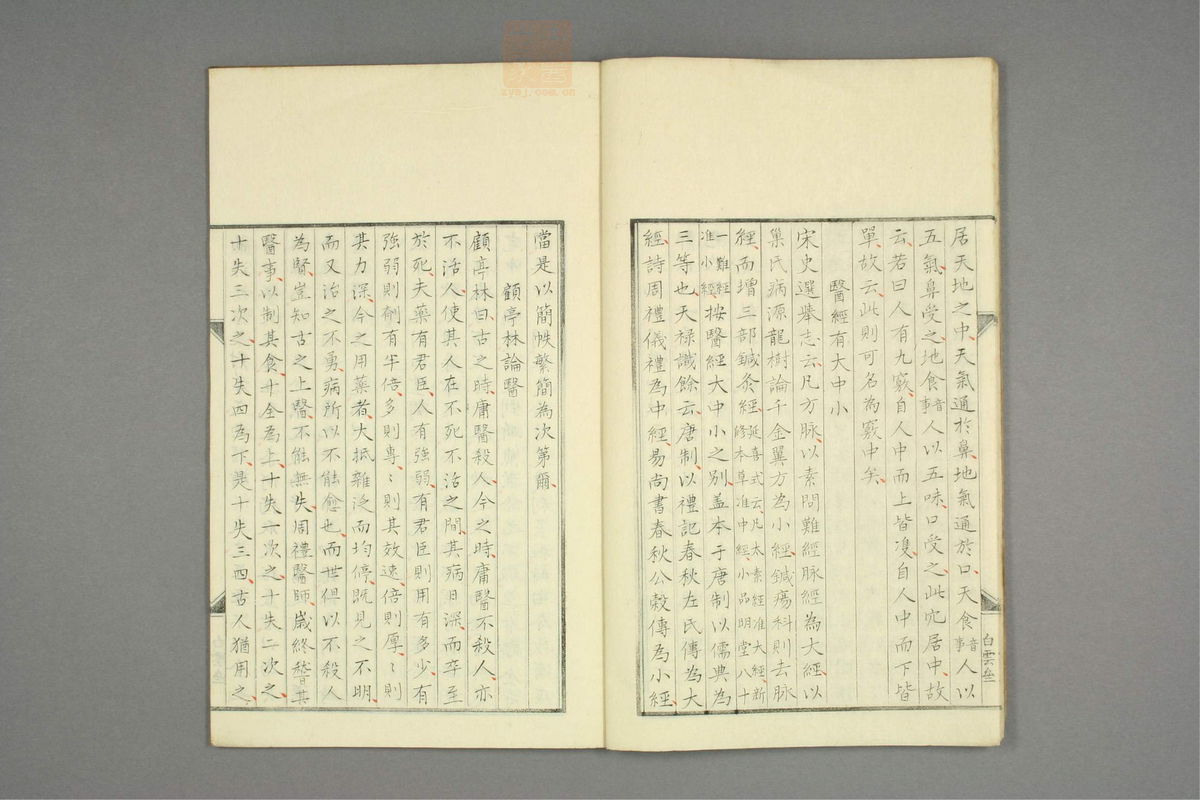 居天地之中、天氣通於鼻、地氣通於口、天食音事人以
五氣、鼻受之、地食音事人以五味、口受之、此穴居中、故
云、若曰人有九竅、自人中而上皆㕠、自人中而下皆
單、故云、此則可名為竅中矣、
醫經有大中小
宋史選舉志云、凡方脉、以素問難經脉經為大經、以
巢氏病源龍樹論千金翼方為小經、鍼瘍科則去脉
經、而增三部鍼灸經、延喜式云、凡太素經准大經、新修本草准中經、小品明堂八十
一難經准小經、按醫經大中小之別、蓋本于唐制以儒典為
三等也、天禄識餘云、唐制、以禮記春秋左氏傳為大
經、詩周禮儀禮為中經、易尚書春秋公穀傳為小經、
白雲
當是以簡帙繁簡為次第爾、
顧亭林論醫
顧亭林曰、古之時、庸醫殺人、今之時、庸醫不殺人、亦
不活人、使其人在不死不活之間、其病日深、而卒至
於死、夫藥有君臣、人有強弱、有君臣則用有多少、有
強弱則劑有半倍、多則專、〻則其效速、倍則厚、〻則
其力深、今之用藥者、大抵雜泛而均停、既見之不明、
而又治之不勇、病所以不能愈也、而世但以不殺人
為賢、豈知古之上醫、不能無失、周禮醫師、歲終稽其
醫事、以制其食、十全為上、十失一次之、十失二次之、
十失三次之、十失四為下、是十失三四、古人猶用之、
zysj.com.cn